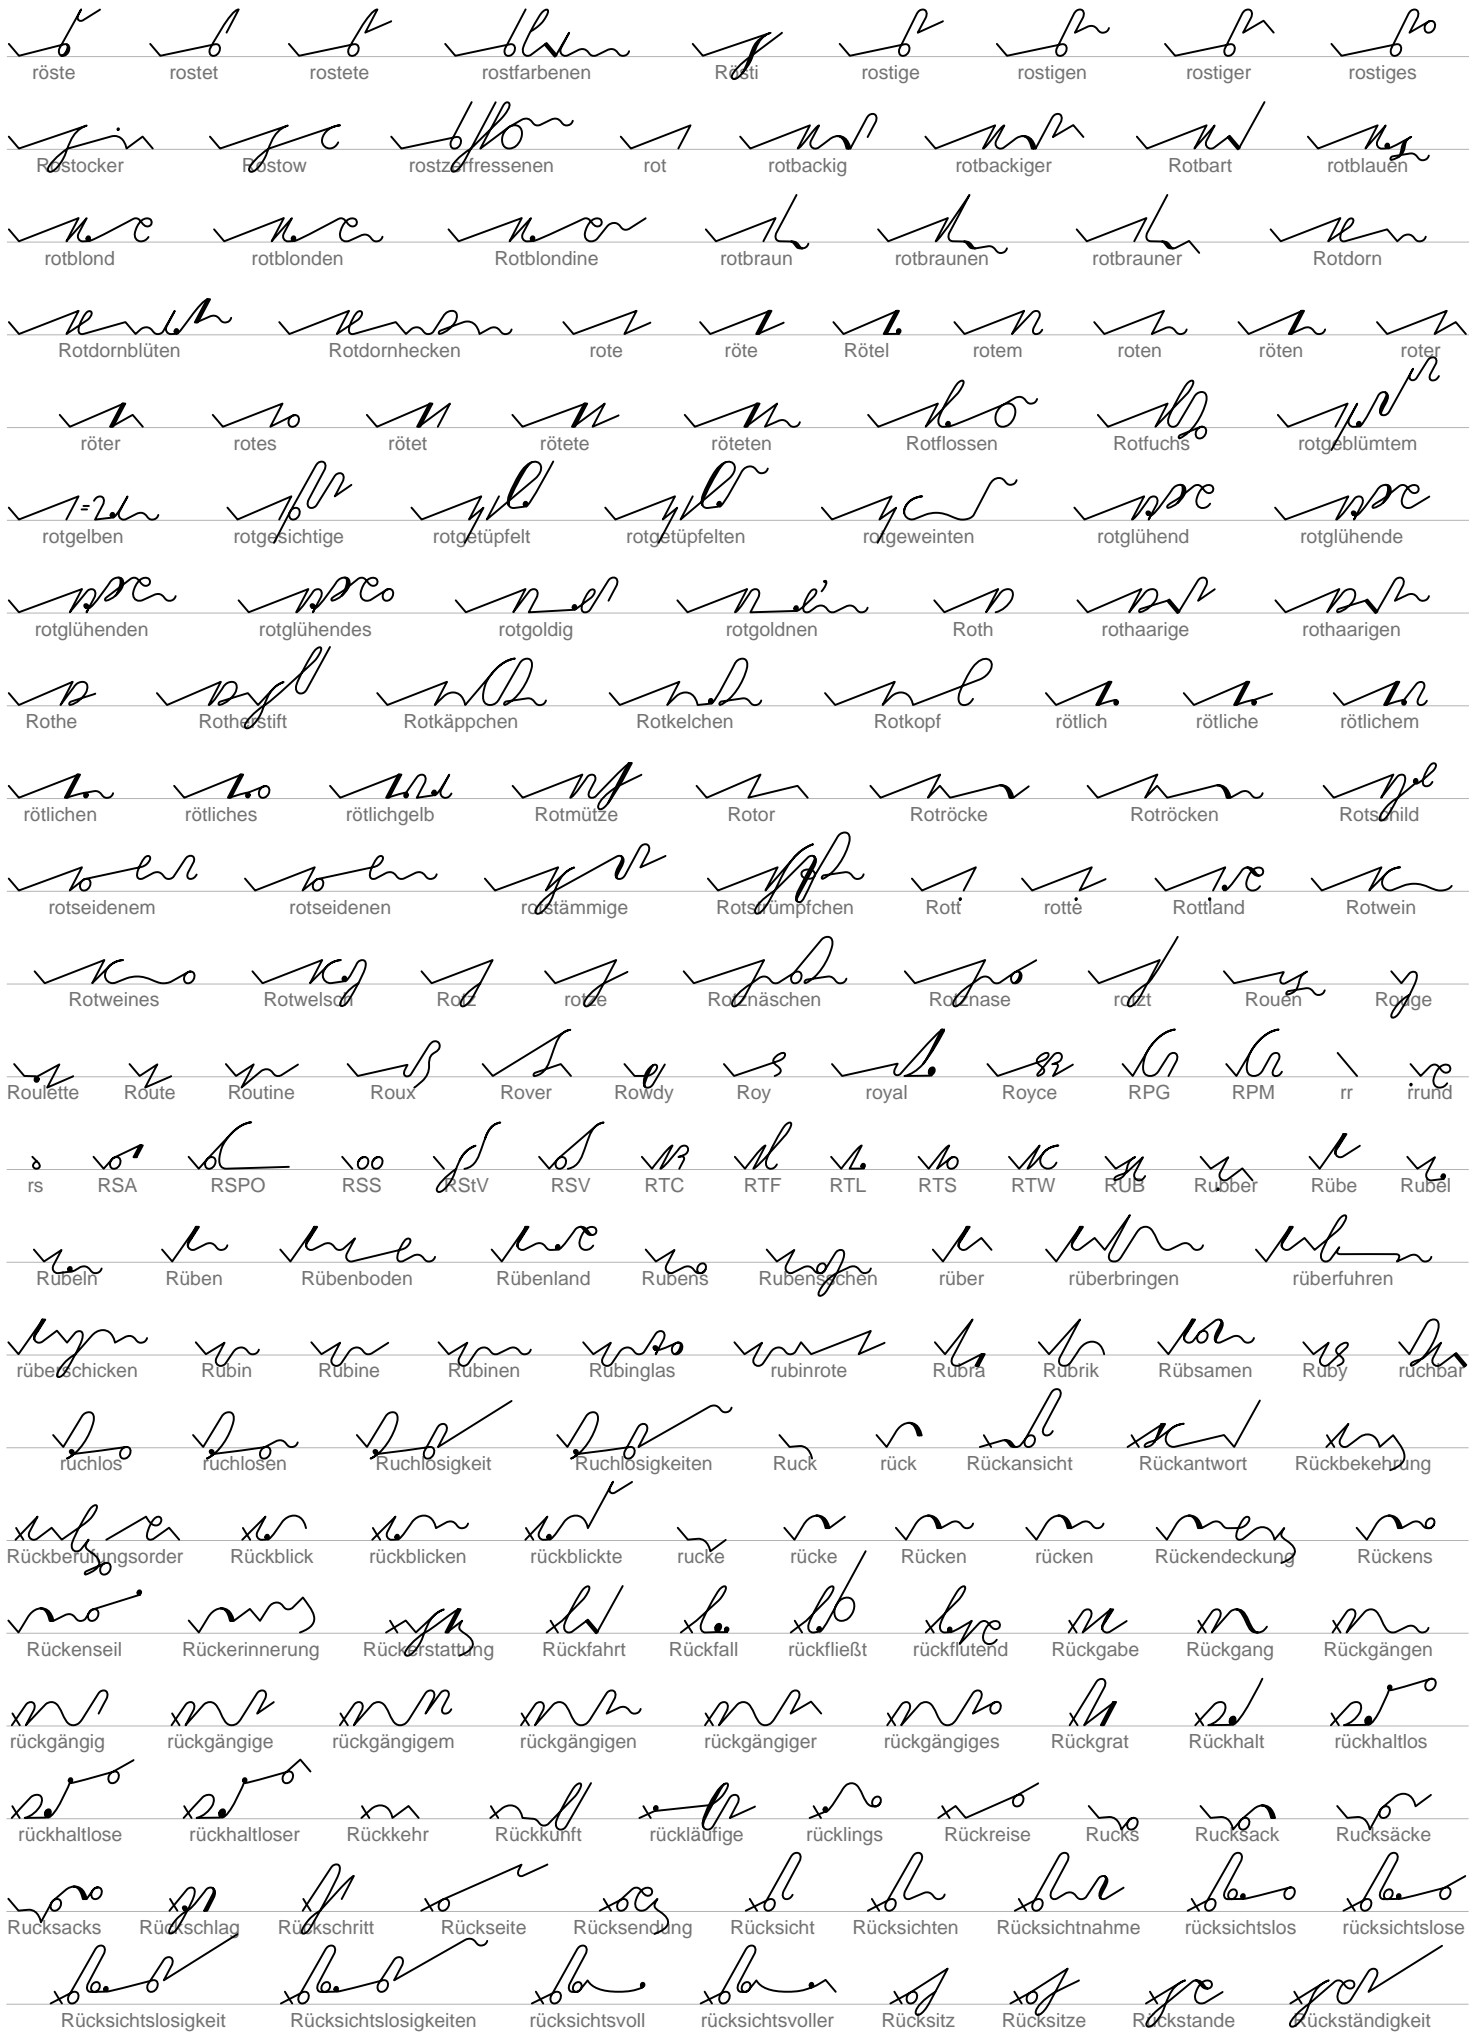 röste rostet rostete rostfarbenen Rösti rostige rostigen rostiger rostiges
Rostocker Rostow rostzerfressenen rot rotbackig rotbackiger Rotbart rotblauen
rotblond rotblonden Rotblondine rotbraun rotbraunen rotbrauner Rotdorn
Rotdornblüten Rotdornhecken rote röte Rötel rotem roten röten roter
röter rotes rötet rötete röteten Rotflossen Rotfuchs rotgeblümtem
rotgelben rotgesichtige rotgetüpfelt rotgetüpfelten rotgeweinten rotglühend rotglühende
rotglühenden rotglühendes rotgoldig rotgoldnen Roth rothaarige rothaarigen
Rothe Rotherstift Rotkäppchen Rotkelchen Rotkopf rötlich rötliche rötlichem
rötlichen rötliches rötlichgelb Rotmütze Rotor Rotröcke Rotröcken Rotschild
rotseidenem rotseidenen rotstämmige Rotstrümpfchen Rott rotte Rottland Rotwein
Rotweines Rotwelsch Rotz rotze Rotznäschen Rotznase rotzt Rouen Rouge
Roulette Route Routine Roux Rover Rowdy Roy royal Royce RPG RPM rr rrund
rs RSA RSPO RSS RStV RSV RTC RTF RTL RTS RTW RUB Rubber Rübe Rubel
Rubeln Rüben Rübenboden Rübenland Rubens Rubensschen rüber rüberbringen rüberfuhren
rüberschicken Rubin Rubine Rubinen Rubinglas rubinrote Rubra Rubrik Rübsamen Ruby ruchbar
ruchlos ruchlosen Ruchlosigkeit Ruchlosigkeiten Ruck rück Rückansicht Rückantwort Rückbekehrung
Rückberufungsorder Rückblick rückblicken rückblickte rucke rücke Rücken rücken Rückendeckung Rückens
Rückenseil Rückerinnerung Rückerstattung Rückfahrt Rückfall rückfließt rückflutend Rückgabe Rückgang Rückgängen
rückgängig rückgängige rückgängigem rückgängigen rückgängiger rückgängiges Rückgrat Rückhalt rückhaltlos
rückhaltlose rückhaltloser Rückkehr Rückkunft rückläufige rücklings Rückreise Rucks Rucksack Rucksäcke
Rucksacks Rückschlag Rückschritt Rückseite Rücksendung Rücksicht Rücksichten Rücksichtnahme rücksichtslos rücksichtslose
Rücksichtslosigkeit Rücksichtslosigkeiten rücksichtsvoll rücksichtsvoller Rücksitz Rücksitze Rückstande Rückständigkeit